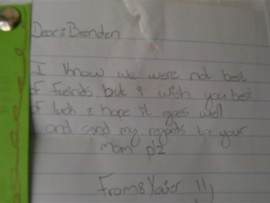 Dear: Brenden
I know we were not best
of friends but I wish you best
of luck & hope it goes well
and send my regards to your
mom plz
From: Yair !!